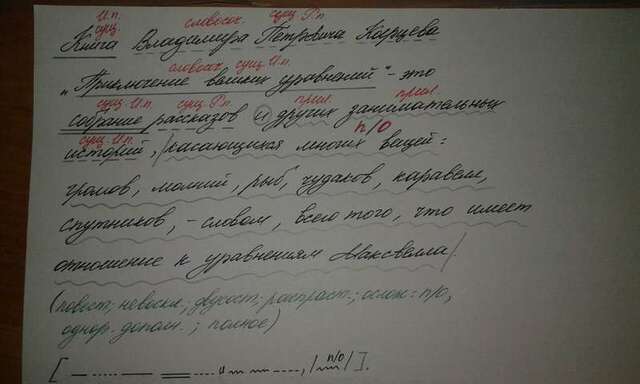 И.п. словосоч. сущ. Р.п
сущ
Книга Владимира Петровича Карцева
словосоч. сущ. И.п.
„Приключение великих уравнений" - это
сущ. И.п. сущ. Р.п. прил. прил.
собрание рассказов и других занимательных
сущ. И.п. п/о
историй, /касающихся многих вещей:
громов, молний, рыб, чудаков, каравелл,
спутников, - словом, всего того, что имеет
отношение к уравнениям Максвелла/.
(повест.; невоскл.; двусост.; распрост.; ослож.: п/о,
однор. дополн.; полное)
п/о